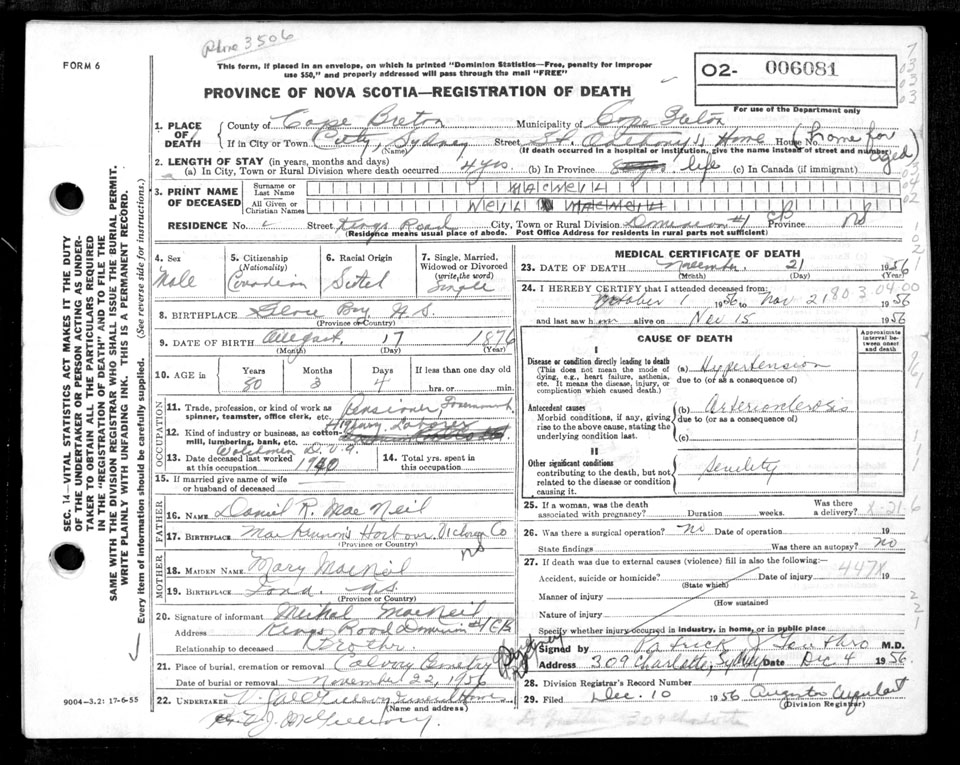 Phone 3506
FORM 6
This form, if placed in an envelope, on which is printed "Dominion Statistics—Free, penalty for improper
use $50," and properly addressed will pass through the mail "FREE"
O2- 006081
For use of the Department only
PROVINCE OF NOVA SCOTIA—REGISTRATION OF DEATH
1. PLACE OF DEATH
County of Cape Breton Municipality of Cape Breton
If in City or Town City, Sydney (Name) Street St. Anthony's Home House No. (home for aged)
(If death occurred in a hospital or institution, give the name instead of street and number)
2. LENGTH OF STAY (in years, months and days)
(a) In City, Town or Rural Division where death occurred 4 yrs. (b) In Province life (c) In Canada (if immigrant)
3. PRINT NAME OF DECEASED
Surname or Last Name MACNEIL
All Given or Christian Names NEIL MACNEIL
RESIDENCE No. Street Kings Road City, Town or Rural Division Dominion #1 CB Province NS
(Residence means usual place of abode. Post Office Address for residents in rural parts not sufficient)
4. Sex Male
5. Citizenship (Nationality) Canadian
6. Racial Origin Scotch
7. Single, Married, Widowed or Divorced (write the word) Single
8. BIRTHPLACE Glace Bay N.S.
(Province or Country)
9. DATE OF BIRTH August 17 1876
(Month) (Day) (Year)
10. AGE in Years 80 Months 3 Days 4 If less than one day old hrs. or min.
OCCUPATION
11. Trade, profession, or kind of work as spinner, teamster, office clerk, etc. Pensioner, Government
12. Kind of industry or business, as cotton-mill, lumbering, bank, etc. Highway Laborer
Watchman
13. Date deceased last worked at this occupation 1940
14. Total yrs. spent in this occupation
15. If married give name of wife or husband of deceased
FATHER
16. NAME Daniel R. MacNeil
17. BIRTHPLACE MacKinnon's Harbour Victoria Co NS
(Province or Country)
MOTHER
18. MAIDEN NAME Mary MacNeil
19. BIRTHPLACE Iona N.S.
(Province or Country)
20. Signature of informant Michael MacNeil
Address Kings Road Dominion #1 CB
Relationship to deceased Brother
21. Place of burial, cremation or removal Calvary Cemetery Sydney
Date of burial or removal November 22, 1956
22. UNDERTAKER V. J. McGillivray Funeral Home
(Name and address)
V. J. McGillivray.
9004—3.2: 17-6-55
SEC. 14—VITAL STATISTICS ACT MAKES IT THE DUTY
OF THE UNDERTAKER OR PERSON ACTING AS UNDER-
TAKER TO OBTAIN ALL THE PARTICULARS REQUIRED
IN THE "REGISTRATION OF DEATH" AND TO FILE THE
SAME WITH THE DIVISION REGISTRAR WHO SHALL ISSUE THE BURIAL PERMIT.
WRITE PLAINLY WITH UNFADING INK. THIS IS A PERMANENT RECORD.
Every item of information should be carefully supplied. (See reverse side for instructions.)
MEDICAL CERTIFICATE OF DEATH
23. DATE OF DEATH November 21 1956
(Month) (Day) (Year)
24. I HEREBY CERTIFY that I attended deceased from:
October 1 1956 to Nov 21 1956
803.0400
and last saw h alive on Nov 15 1956
CAUSE OF DEATH
Approximate interval between onset and death
I
Disease or condition directly leading to death
(This does not mean the mode of dying, e.g., heart failure, asthenia, etc. It means the disease, injury, or complication which caused death.)
(a) Hypertension
due to (or as a consequence of)
Antecedent causes
Morbid conditions, if any, giving rise to the above cause, stating the underlying condition last.
(b) Arteriosclerosis
due to (or as a consequence of)
(c)
II
Other significant conditions
contributing to the death, but not related to the disease or condition causing it.
Senility
25. If a woman, was the death associated with pregnancy? Duration weeks. Was there a delivery?
X-21-6
26. Was there a surgical operation? No Date of operation 19
State findings Was there an autopsy? No
27. If death was due to external causes (violence) fill in also the following:
Accident, suicide or homicide? (State which) Date of injury 19
447X
Manner of injury (How sustained)
Nature of injury
Specify whether injury occurred in industry, in home, or in public place
Signed by Patrick J. M.D.
Address 309 Charlotte, Sydney Date Dec 4 1956.
28. Division Registrar's Record Number
29. Filed Dec. 10 1956 Augusta Urquhart
(Division Registrar)